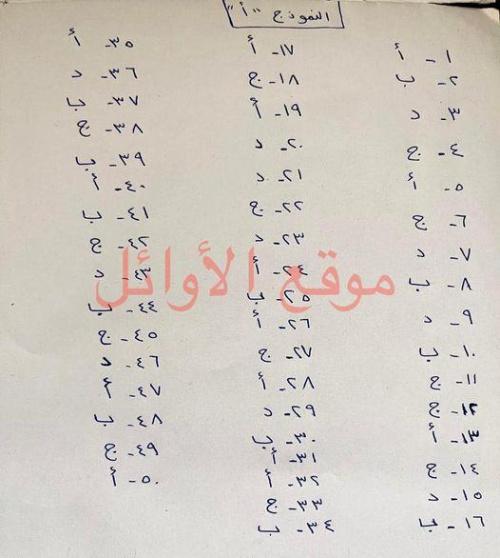 النموذج "أ"
١- أ
٢- ب
٣- د
٤- ج
٥- أ
٦- ج
٧- د
٨- ب
٩- د
١٠- ب
١١- ج
١٢- ج
١٣- أ
١٤- ج
١٥- د
١٦- ب
١٧- أ
١٨- ج
١٩- أ
٢٠- د
٢١- د
٢٢- ج
٢٣- د
٢٤- أ
٢٥- ب
٢٦- أ
٢٧- ج
٢٨- أ
٢٩- د
٣٠- ب
٣١- أ
٣٢- أ
٣٣- ج
٣٤- ب
٣٥- أ
٣٦- د
٣٧- ب
٣٨- ج
٣٩- ب
٤٠- أ
٤١- ب
٤٢- ج
٤٣- د
٤٤- ب
٤٥- ج
٤٦- د
٤٧- أ
٤٨- ب
٤٩- ج
٥٠- أ
موقع الأوائل